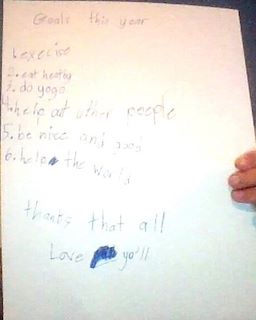 Goals this year
1. exercise
2. eat healthy
3. do yoga
4. help at other people
5. be nice and good
6. help the world
thanks that all
Love yo'll